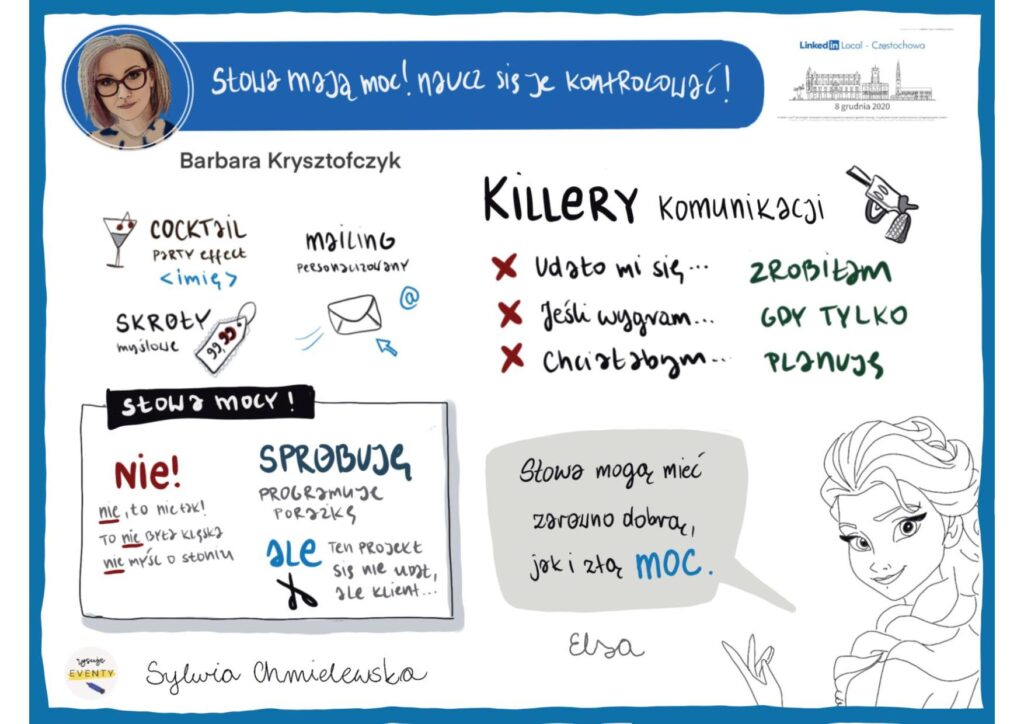 Słowa mają moc! naucz się je kontrolować!
Linked in Local - Częstochowa
8 grudnia 2020
Barbara Krysztofczyk
COCKTAIL
PARTY effect
<imię>
mailing
personalizowany
@
SKRÓTY
myślowe
99,99
KILLERY komunikacji
Udało mi się... ZROBIŁAM
Jeśli wygram... GDY TYLKO
Chciałabym... PLANUJĘ
SŁOWA MOCY!
NIE!
nie, to nie tak!
TO nie BYŁA KLĘSKA
nie MYŚL O SŁONIU
SPRÓBUJĘ
PROGRAMUJE
PORAŻKĘ
ALE TEN PROJEKT
SIĘ NIE UDAŁ,
ALE KLIENT...
Słowa mogą mieć
zarówno dobrą,
jak i złą MOC.
Elsa
rysuję
EVENTY
Sylwia Chmielewska